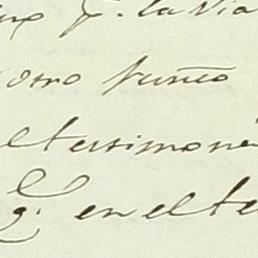 p.r la via
otro punto
el testimoni
q.e en el te